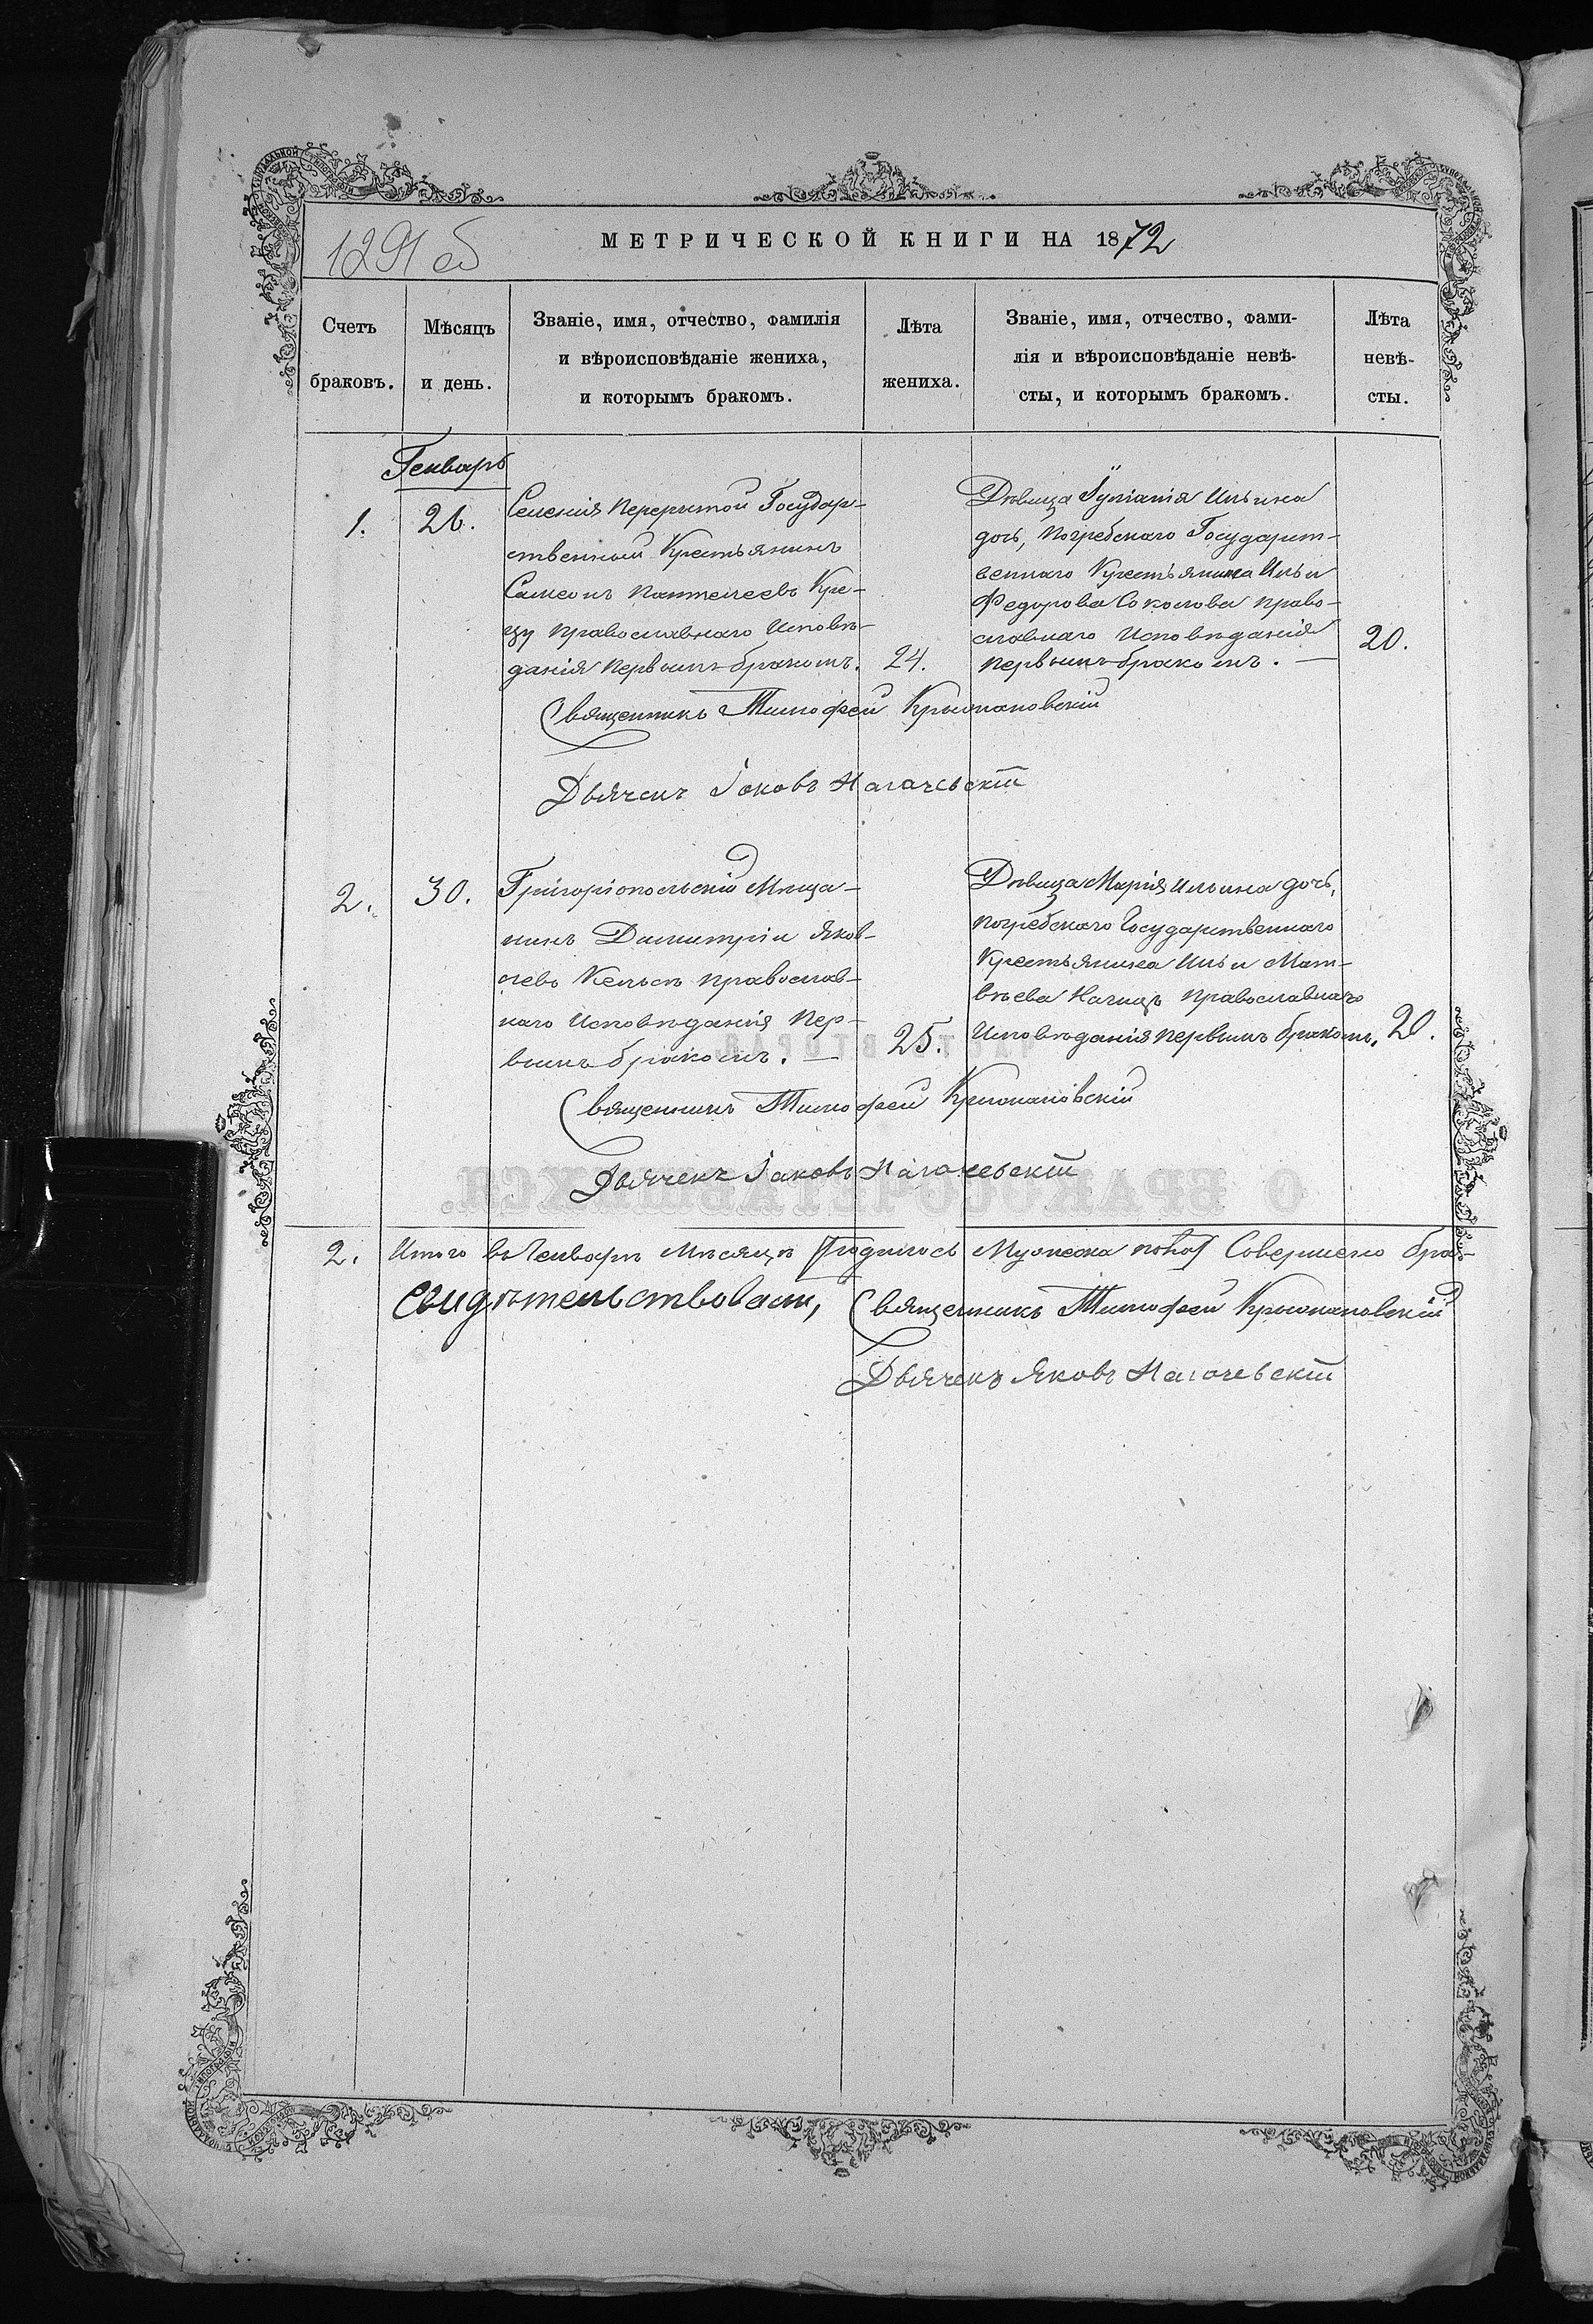 1291 об
МЕТРИЧЕСКОЙ КНИГИ НА 1872
Счетъ браковъ.
Мѣсяцъ и день.
Званіе, имя, отчество, фамилія
и вѣроисповѣданіе жениха,
и которымъ бракомъ.
Лѣта жениха.
Званіе, имя, отчество, фами-
лія и вѣроисповѣданіе невѣ-
сты, и которымъ бракомъ.
Лѣта невѣ-
сты.
Генварь
1.
26.
Селенія Перерытой Государ-
ственный Крестьянинъ
Симеонъ Пантелеевъ Кре-
цу Православнаго Исповѣ-
данія Первымъ бракомъ.
24.
Дѣвица Іуліанія Ильина
дочь, Погребскаго Государст-
веннаго Крестьянина Ильи
Федорова Соколова Право-
славнаго Исповѣданія
Первымъ бракомъ. —
20.
Священникъ Тимофей
Дьячекъ Іаковъ
2.
30.
Григоріопольскій Мѣща-
нинъ Димитрій Яков-
левъ Православ-
наго Исповѣданія Пер-
вымъ бракомъ. —
25.
Дѣвица Марія Ильина дочь,
Погребскаго Государственнаго
Крестьянина Ильи Мат-
вѣева Православнаго
Исповѣданія Первымъ бракомъ.
20.
Священникъ Тимофей
Дьячекъ Іаковъ
2. Итого въ Генварѣ Мѣсяцѣ Совершено
Свидѣтельствовали, Священникъ Тимофей
Дьячекъ Яковъ